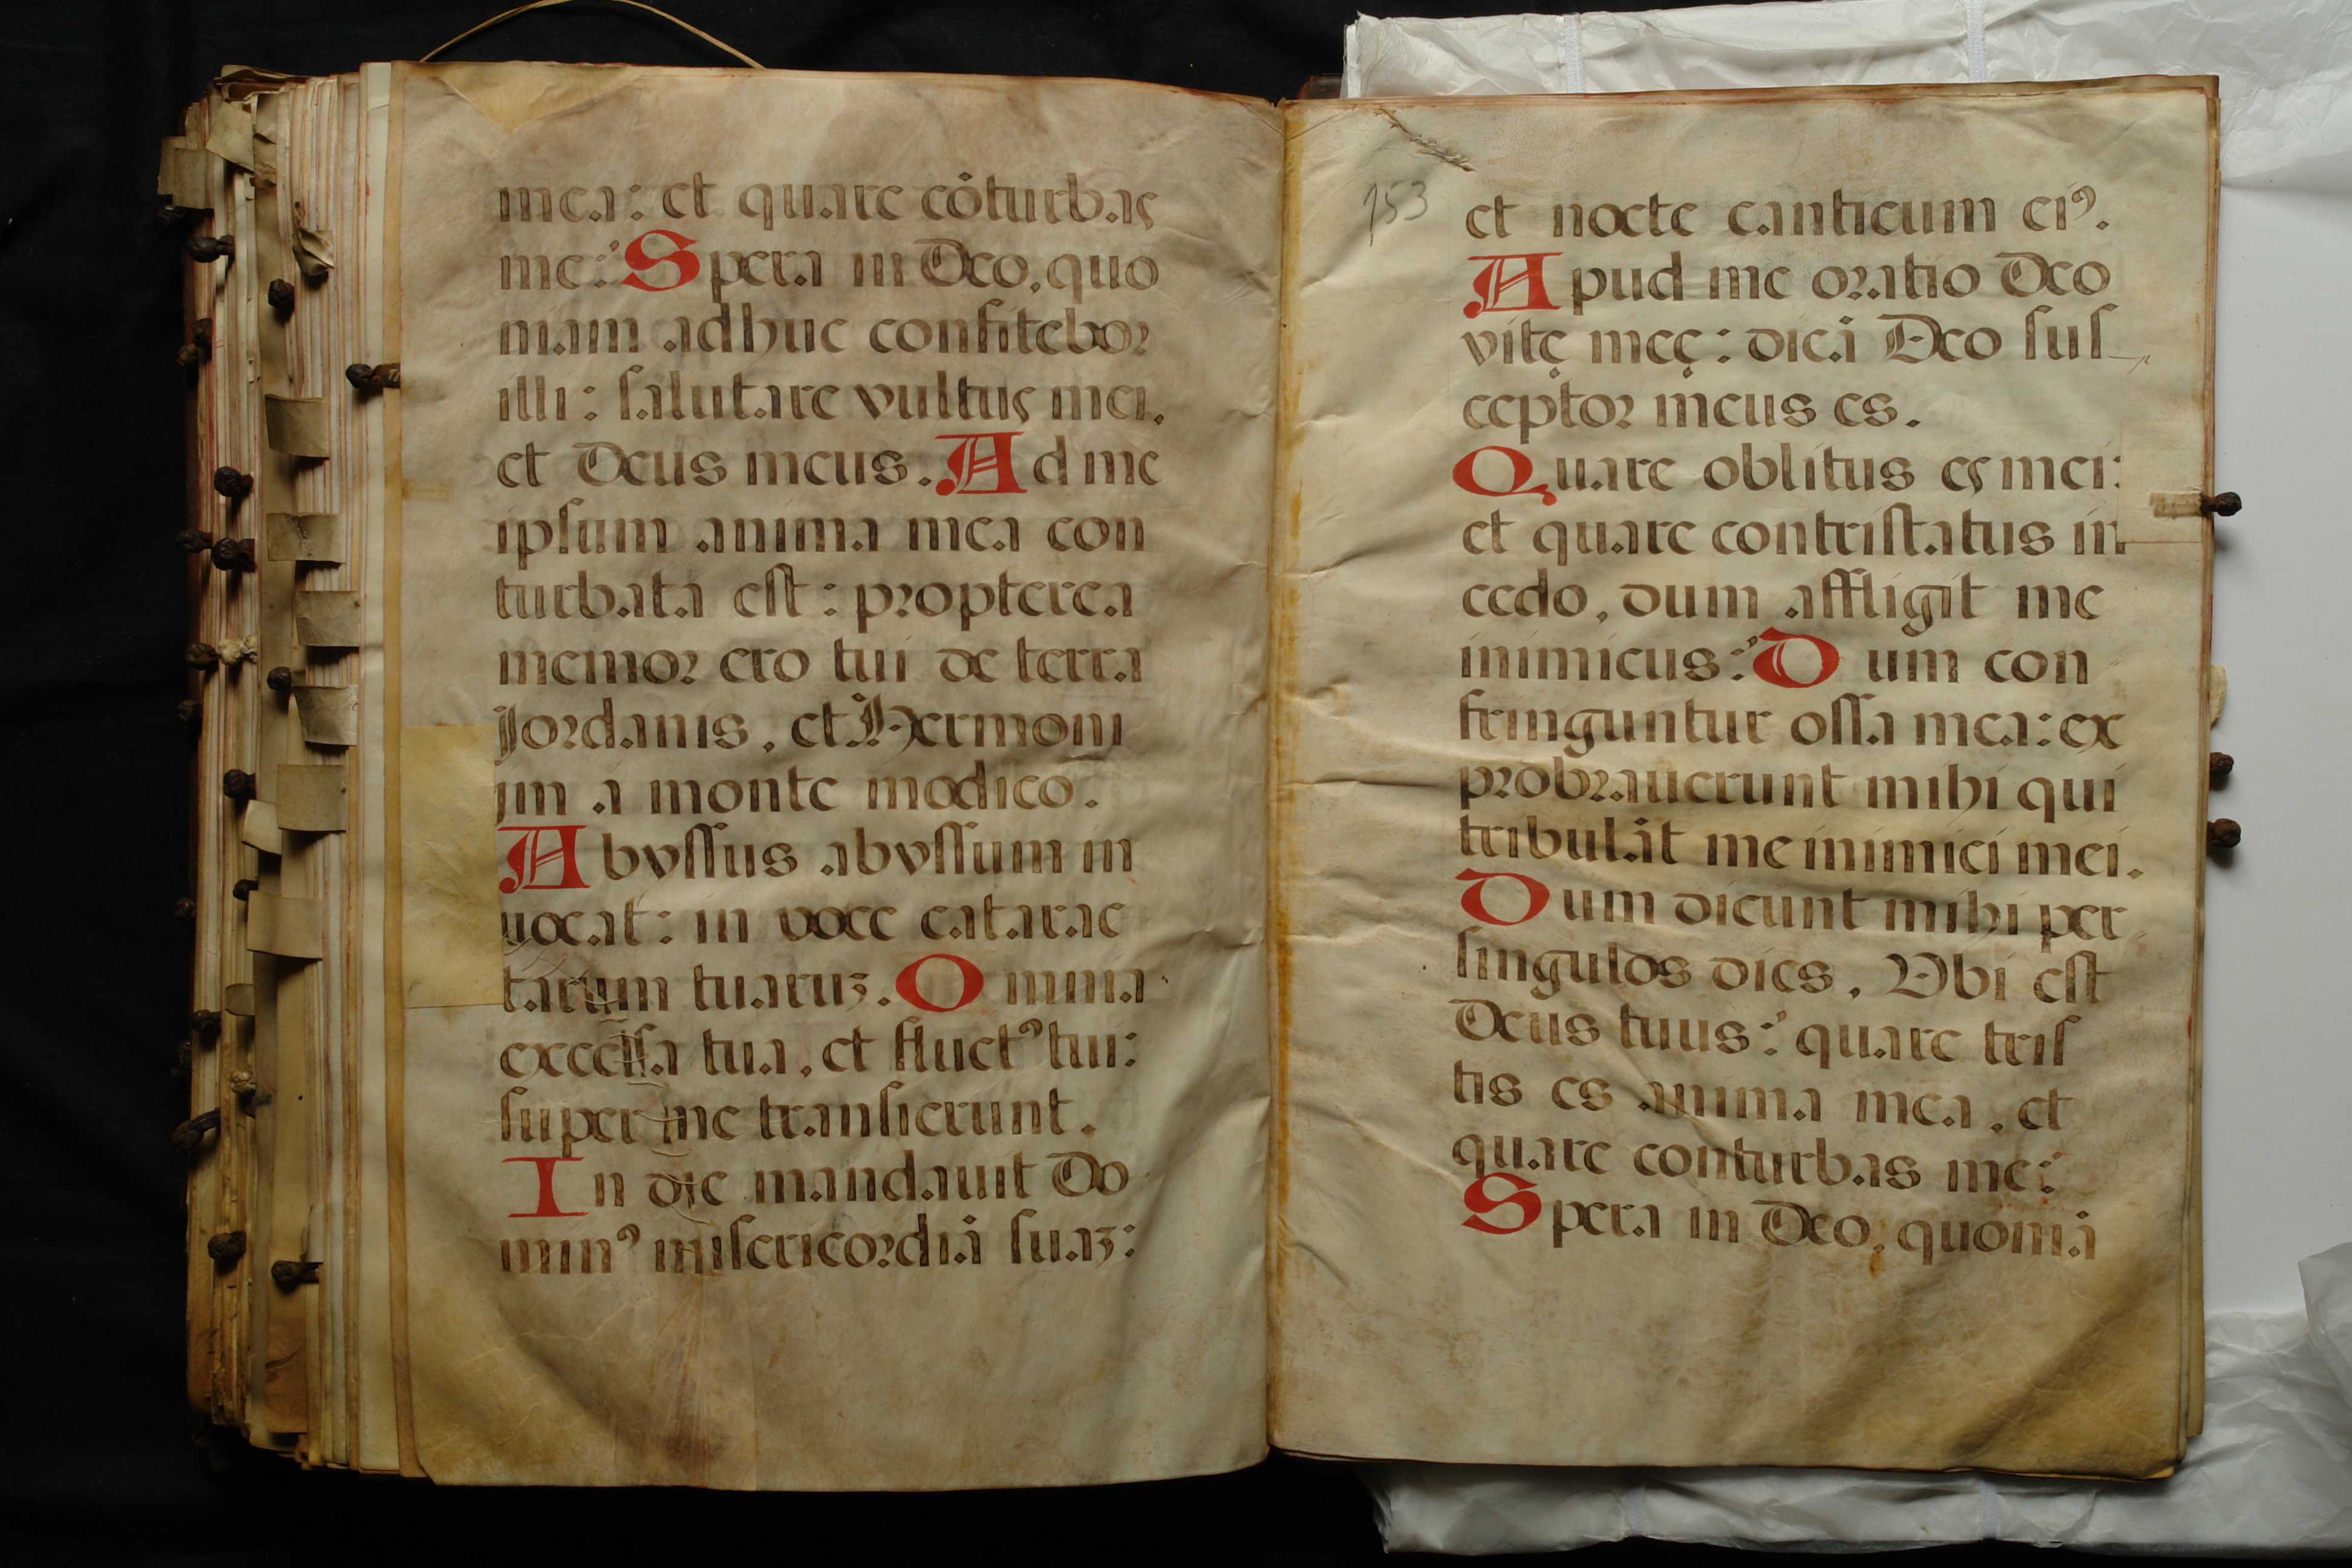 mea: et quare cõturbas
me: Spera in Deo, quo
niam adhuc confitebor
illi: ſalutare vultus mei,
et Deus meus. Ad me
ipſum anima mea con
turbata eſt: propterea
memor ero tui de terra
Jordanis, et Hermoni
jm a monte modico.
Abyſſus abyſſum in
uocat: in voce catarac
tarum tuaruʒ. Omnia
excelſa tua, et fluctꝰ tui:
ſuper me tranſierunt.
In die mandauit Do
minꝰ miſericordiã ſuaʒ:
153
et nocte canticum eiꝰ.
Apud me oratio Deo
vitę meę: dicã Deo ſuſ
ceptor meus es.
Quare oblitus es mei:
et quare contriſtatus in
cedo, dum affligit me
inimicus: Dum con
fringuntur oſſa mea: ex
probrauerunt mihi qui
tribulãt me inimici mei.
Dum dicunt mihi per
ſingulos dies, Vbi eſt
Deus tuus: quare triſ
tis es anima mea, et
quare conturbas me:
Spera in Deo, quoniã